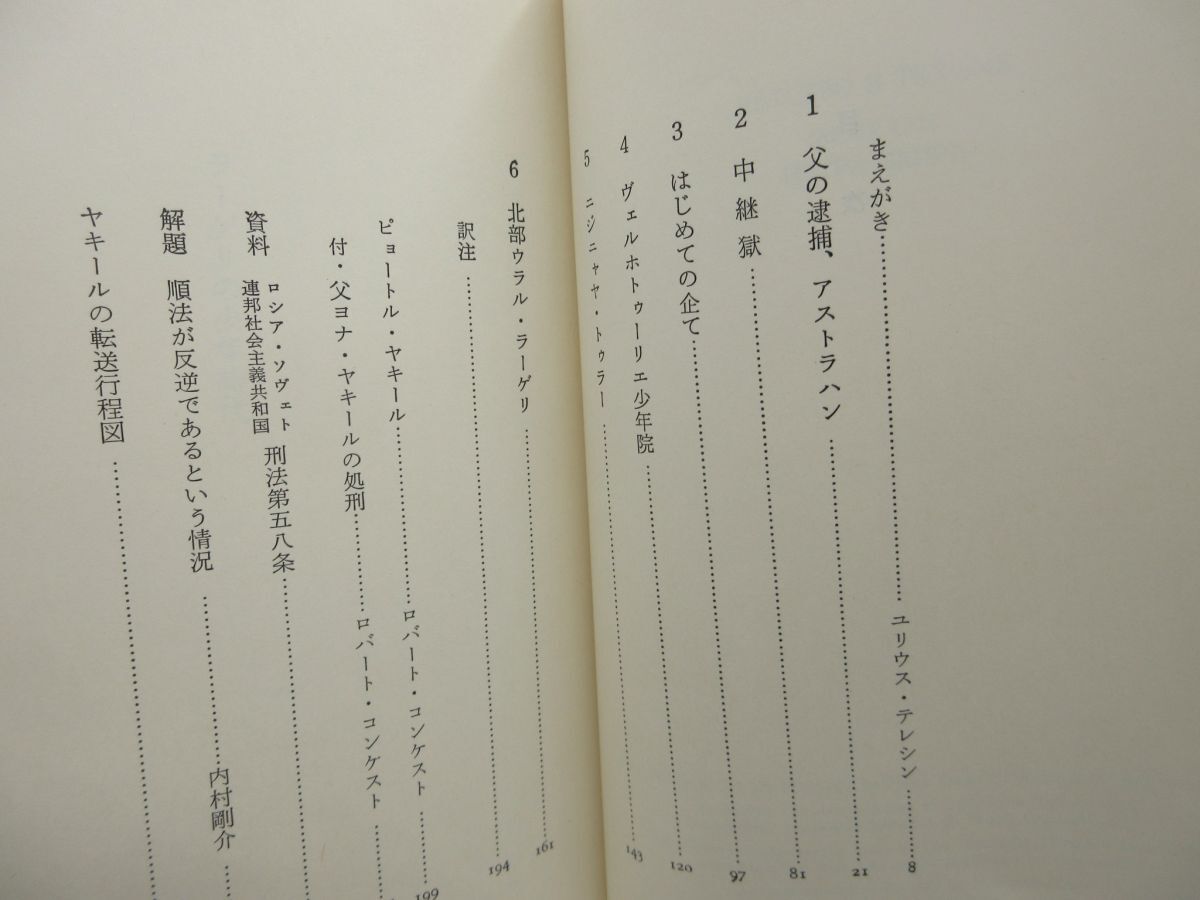 まえがき……ユリウス・テレシン……8
1 父の逮捕、アストラハン……21
2 中継獄……81
3 はじめての企て……97
4 ヴェルホトゥーリエ少年院……120
5 ニジニャヤ・トゥラー……143
6 北部ウラル・ラーゲリ……161
訳注……194
ピョートル・ヤキール……ロバート・コンケスト……199
付・父ヨナ・ヤキールの処刑……ロバート・コンケスト……
資料 ロシア・ソヴェト連邦社会主義共和国 刑法第五八条……
解題 順法が反逆であるという情況……内村剛介……
ヤキールの転送行程図……